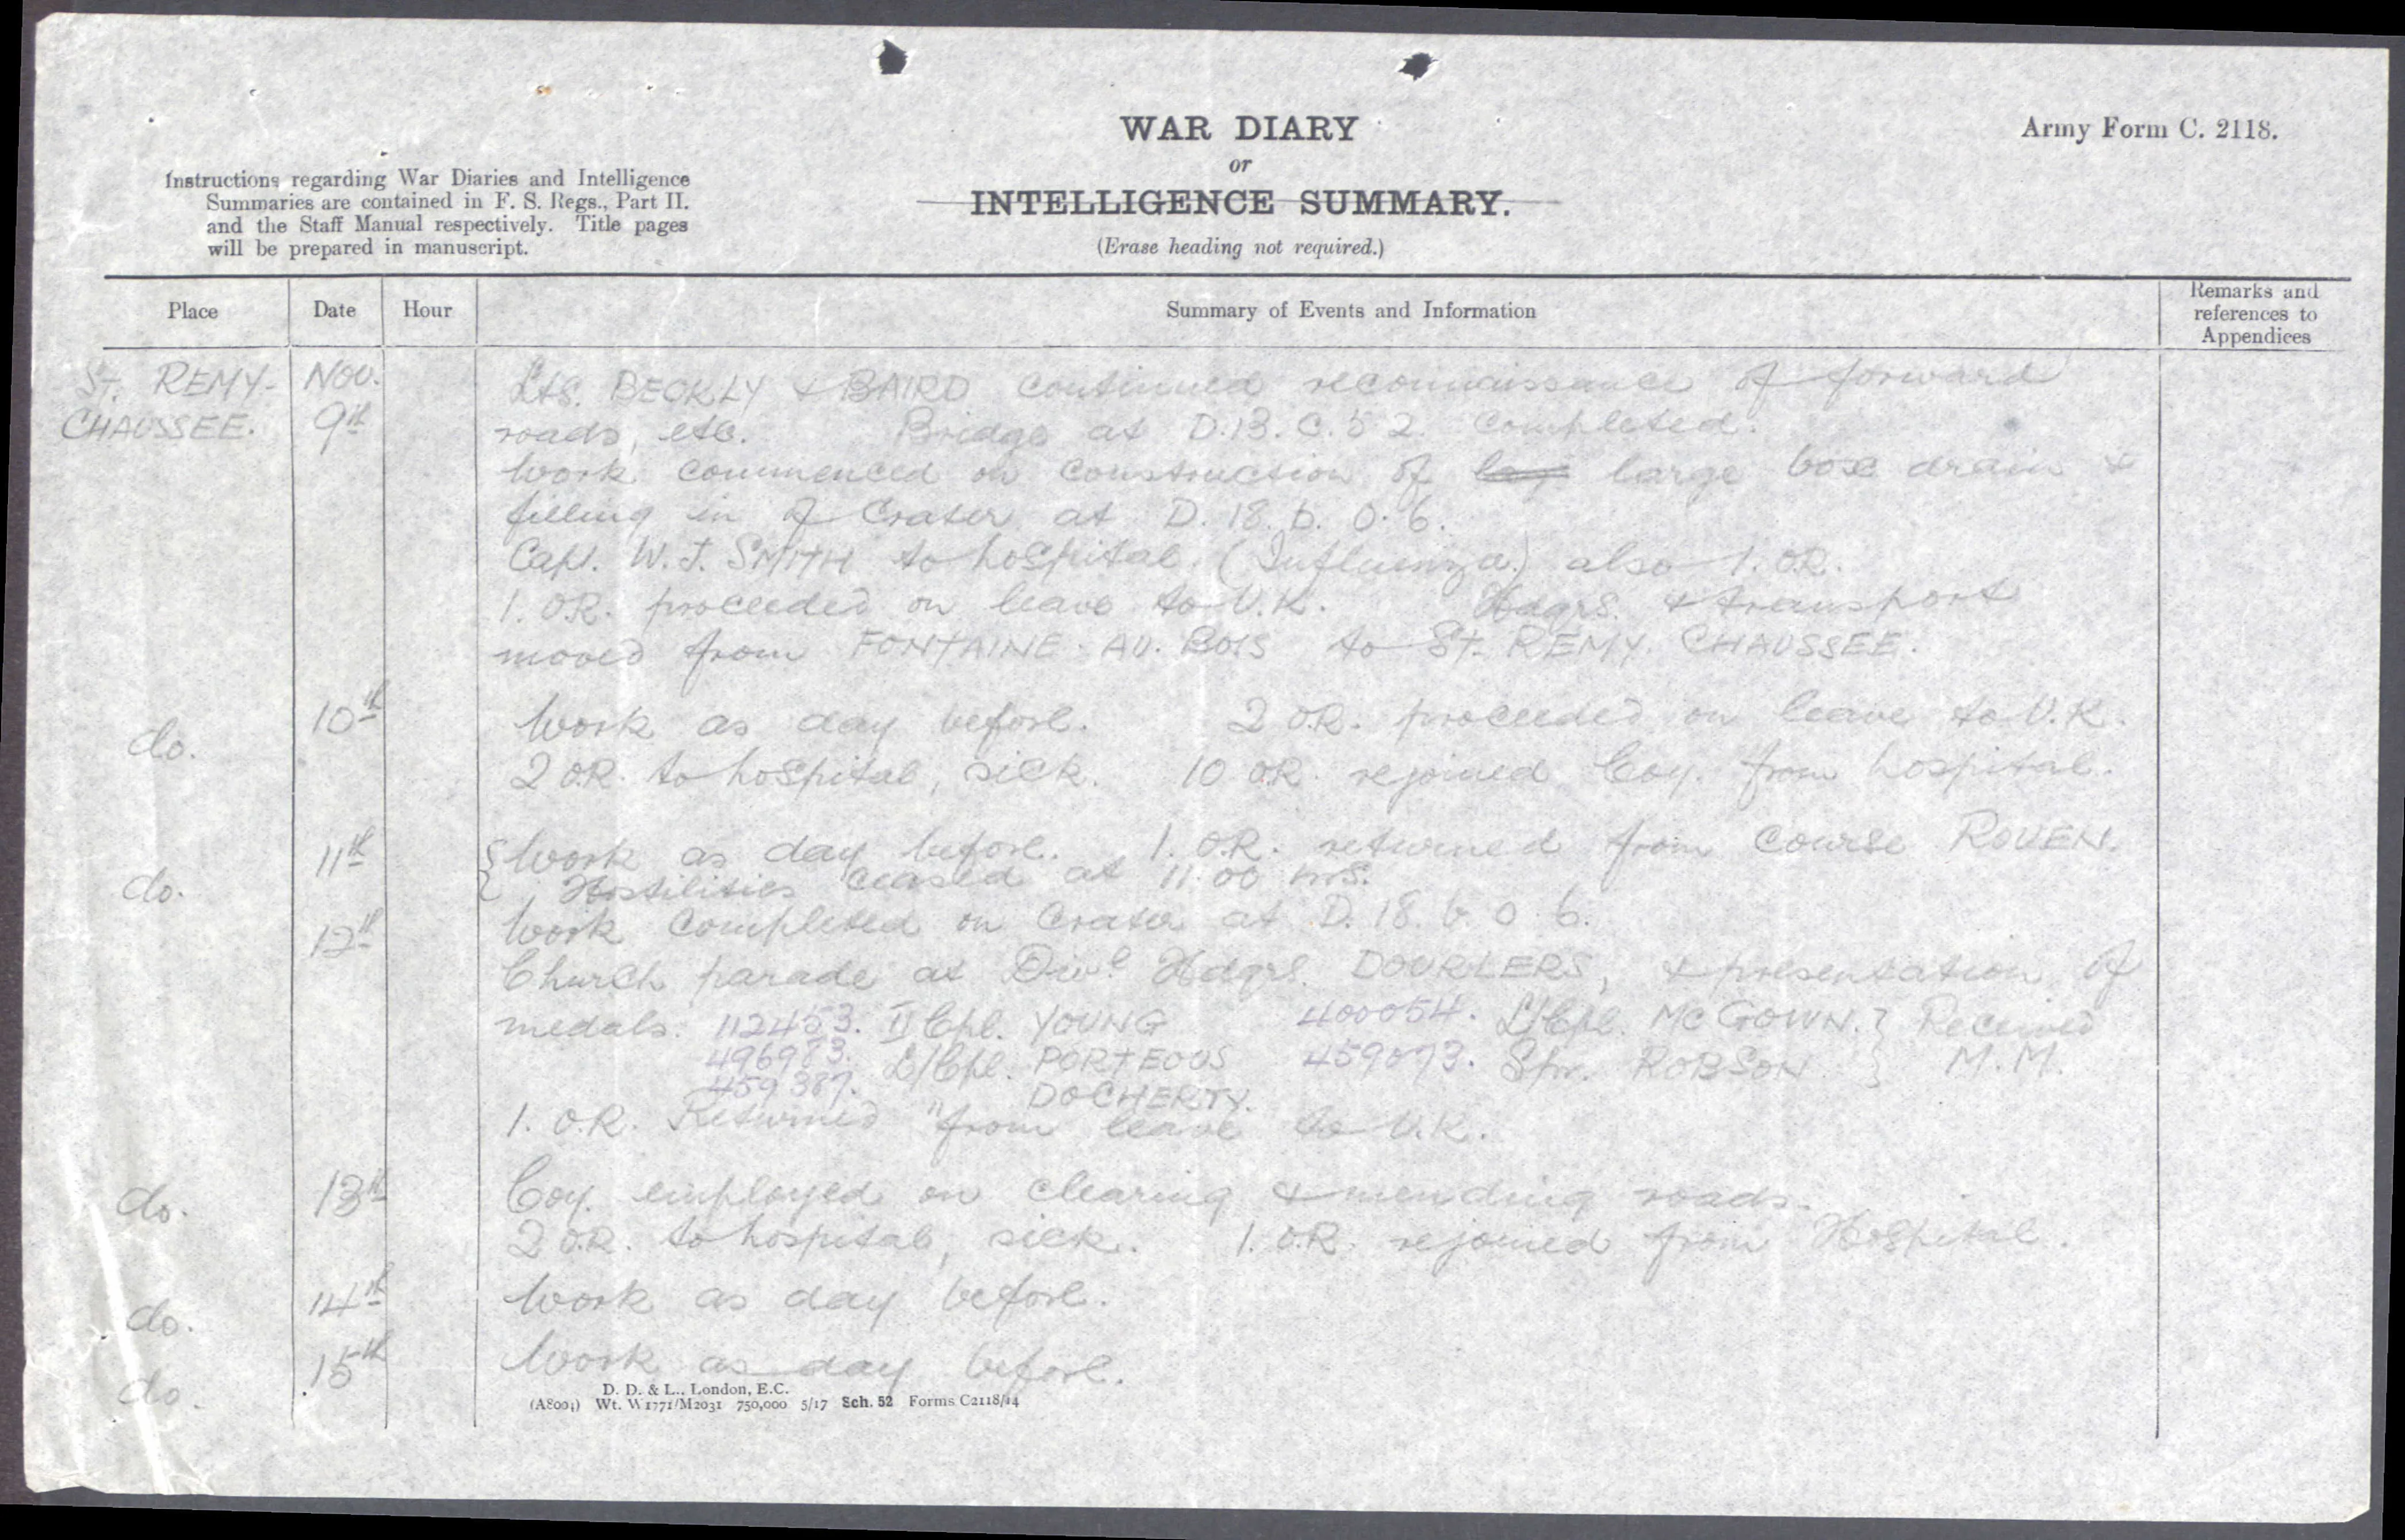 WAR DIARY
or
INTELLIGENCE SUMMARY.
(Erase heading not required.)
Army Form C. 2118.
Instructions regarding War Diaries and Intelligence
Summaries are contained in F. S. Regs., Part II.
and the Staff Manual respectively. Title pages
will be prepared in manuscript.
Place Date Hour Summary of Events and Information Remarks and references to Appendices
ST. REMY- NOV. Lts. BECKLY & BAIRD continued reconnaissance of forward
CHAUSSEE. 9th roads, etc. Bridge at D.13.C.5 2. Completed.
Work commenced on construction of large box drain &
filling in of Crater at D. 18. b. 0. 6.
Capt. W. J. SMITH to hospital. (Influenza.) also 1. O.R.
1. O.R. proceeded on leave to U.K. Hdqrs. & transport
moved from FONTAINE. AU. BOIS to ST. REMY. CHAUSSEE.
do. 10th Work as day before. 2 O.R. proceeded on leave to U.K.
2 O.R. to hospital, sick. 10 O.R. rejoined Coy. from hospital.
do. 11th { Work as day before. 1. O.R. returned from Course ROUEN.
Hostilities ceased at 11.00 hrs.
12th Work completed on Crater at D. 18. b. 0. 6.
Church parade at Divl Hdqrs. DOURLERS, & presentation of
medals. 112453. II Cpl. YOUNG 400054. L/Cpl. McGOWN. } Received
496983. L/Cpl. PORTEOUS 459073. Spr. ROBSON } M.M.
459387. " DOCHERTY.
1. O.R. Returned from leave to U.K.
do. 13th Coy. employed on clearing & mending roads.
2 O.R. to hospital, sick. 1. O.R. rejoined from Hospital.
do. 14th Work as day before.
do. 15th Work as day before.
D. D. & L., London, E.C.
(A8004) Wt. W1771/M2031 750,000 5/17 Sch. 52 Forms C2118/14